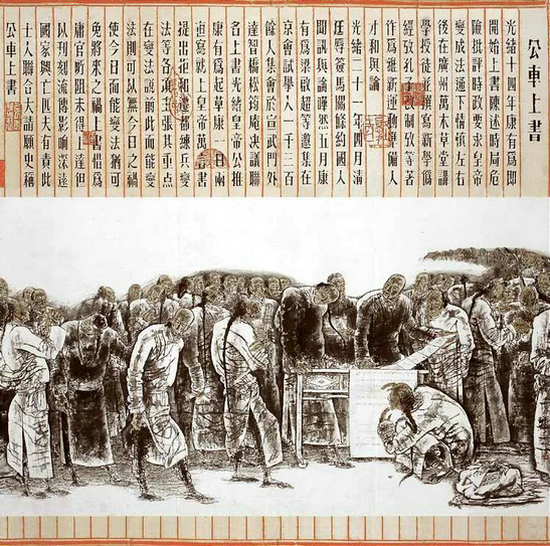 公車上書
光緒十四年康有爲即
開始上書陳述時局危
險批評時政要求皇帝
變成法通下情慎左右
後在廣州萬木草堂講
學授徒並撰寫新學僞
經攷孔子改制攷等著
作爲維新運動準備人
才和輿論
光緒二十一年四月清
廷辱簽馬關條約國人
聞訊輿論嘩然五月康
有爲梁啟超等邀集在
京會試學人一千三百
餘人集會於宣武門外
達智橋松筠庵決議聯
名上書光緒皇帝公推
康有爲起草康 日兩
寫就上皇帝萬言書
提出拒和遷都練兵變
法等各項主張其重点
在變法謂前此而能變
法則可以無今日之禍
使今日而能變法猶可
免將來之禍上書惜爲
庸官所阻未得上達但
以刊刻流傳影响深遠
國家興亡匹夫有責此
士人聯合大請願史稱
公車上書